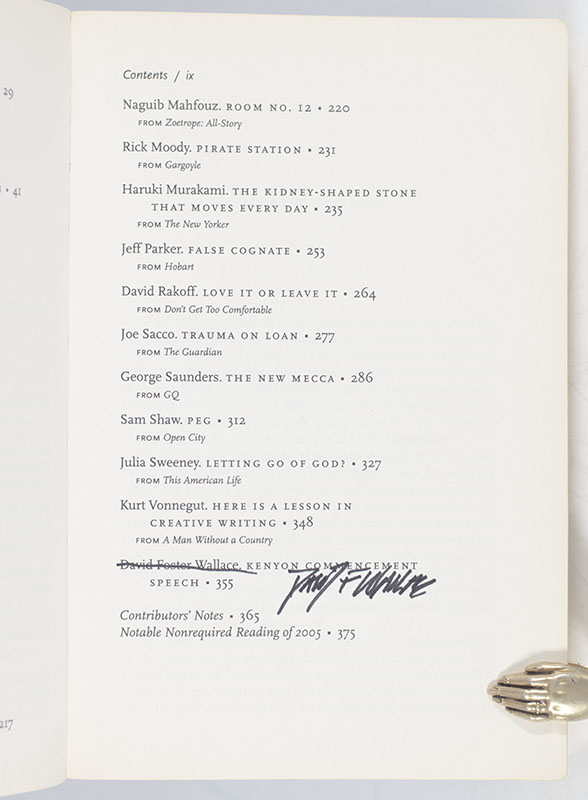 Contents / ix
29
Naguib Mahfouz. ROOM NO. 12 • 220
FROM Zoetrope: All-Story
Rick Moody. PIRATE STATION • 231
FROM Gargoyle
• 41
Haruki Murakami. THE KIDNEY-SHAPED STONE
THAT MOVES EVERY DAY • 235
FROM The New Yorker
Jeff Parker. FALSE COGNATE • 253
FROM Hobart
David Rakoff. LOVE IT OR LEAVE IT • 264
FROM Don't Get Too Comfortable
Joe Sacco. TRAUMA ON LOAN • 277
FROM The Guardian
George Saunders. THE NEW MECCA • 286
FROM GQ
Sam Shaw. PEG • 312
FROM Open City
Julia Sweeney. LETTING GO OF GOD? • 327
FROM This American Life
Kurt Vonnegut. HERE IS A LESSON IN
CREATIVE WRITING • 348
FROM A Man Without a Country
David Foster Wallace. KENYON COMMENCEMENT
SPEECH • 355
Contributors' Notes • 365
Notable Nonrequired Reading of 2005 • 375
217